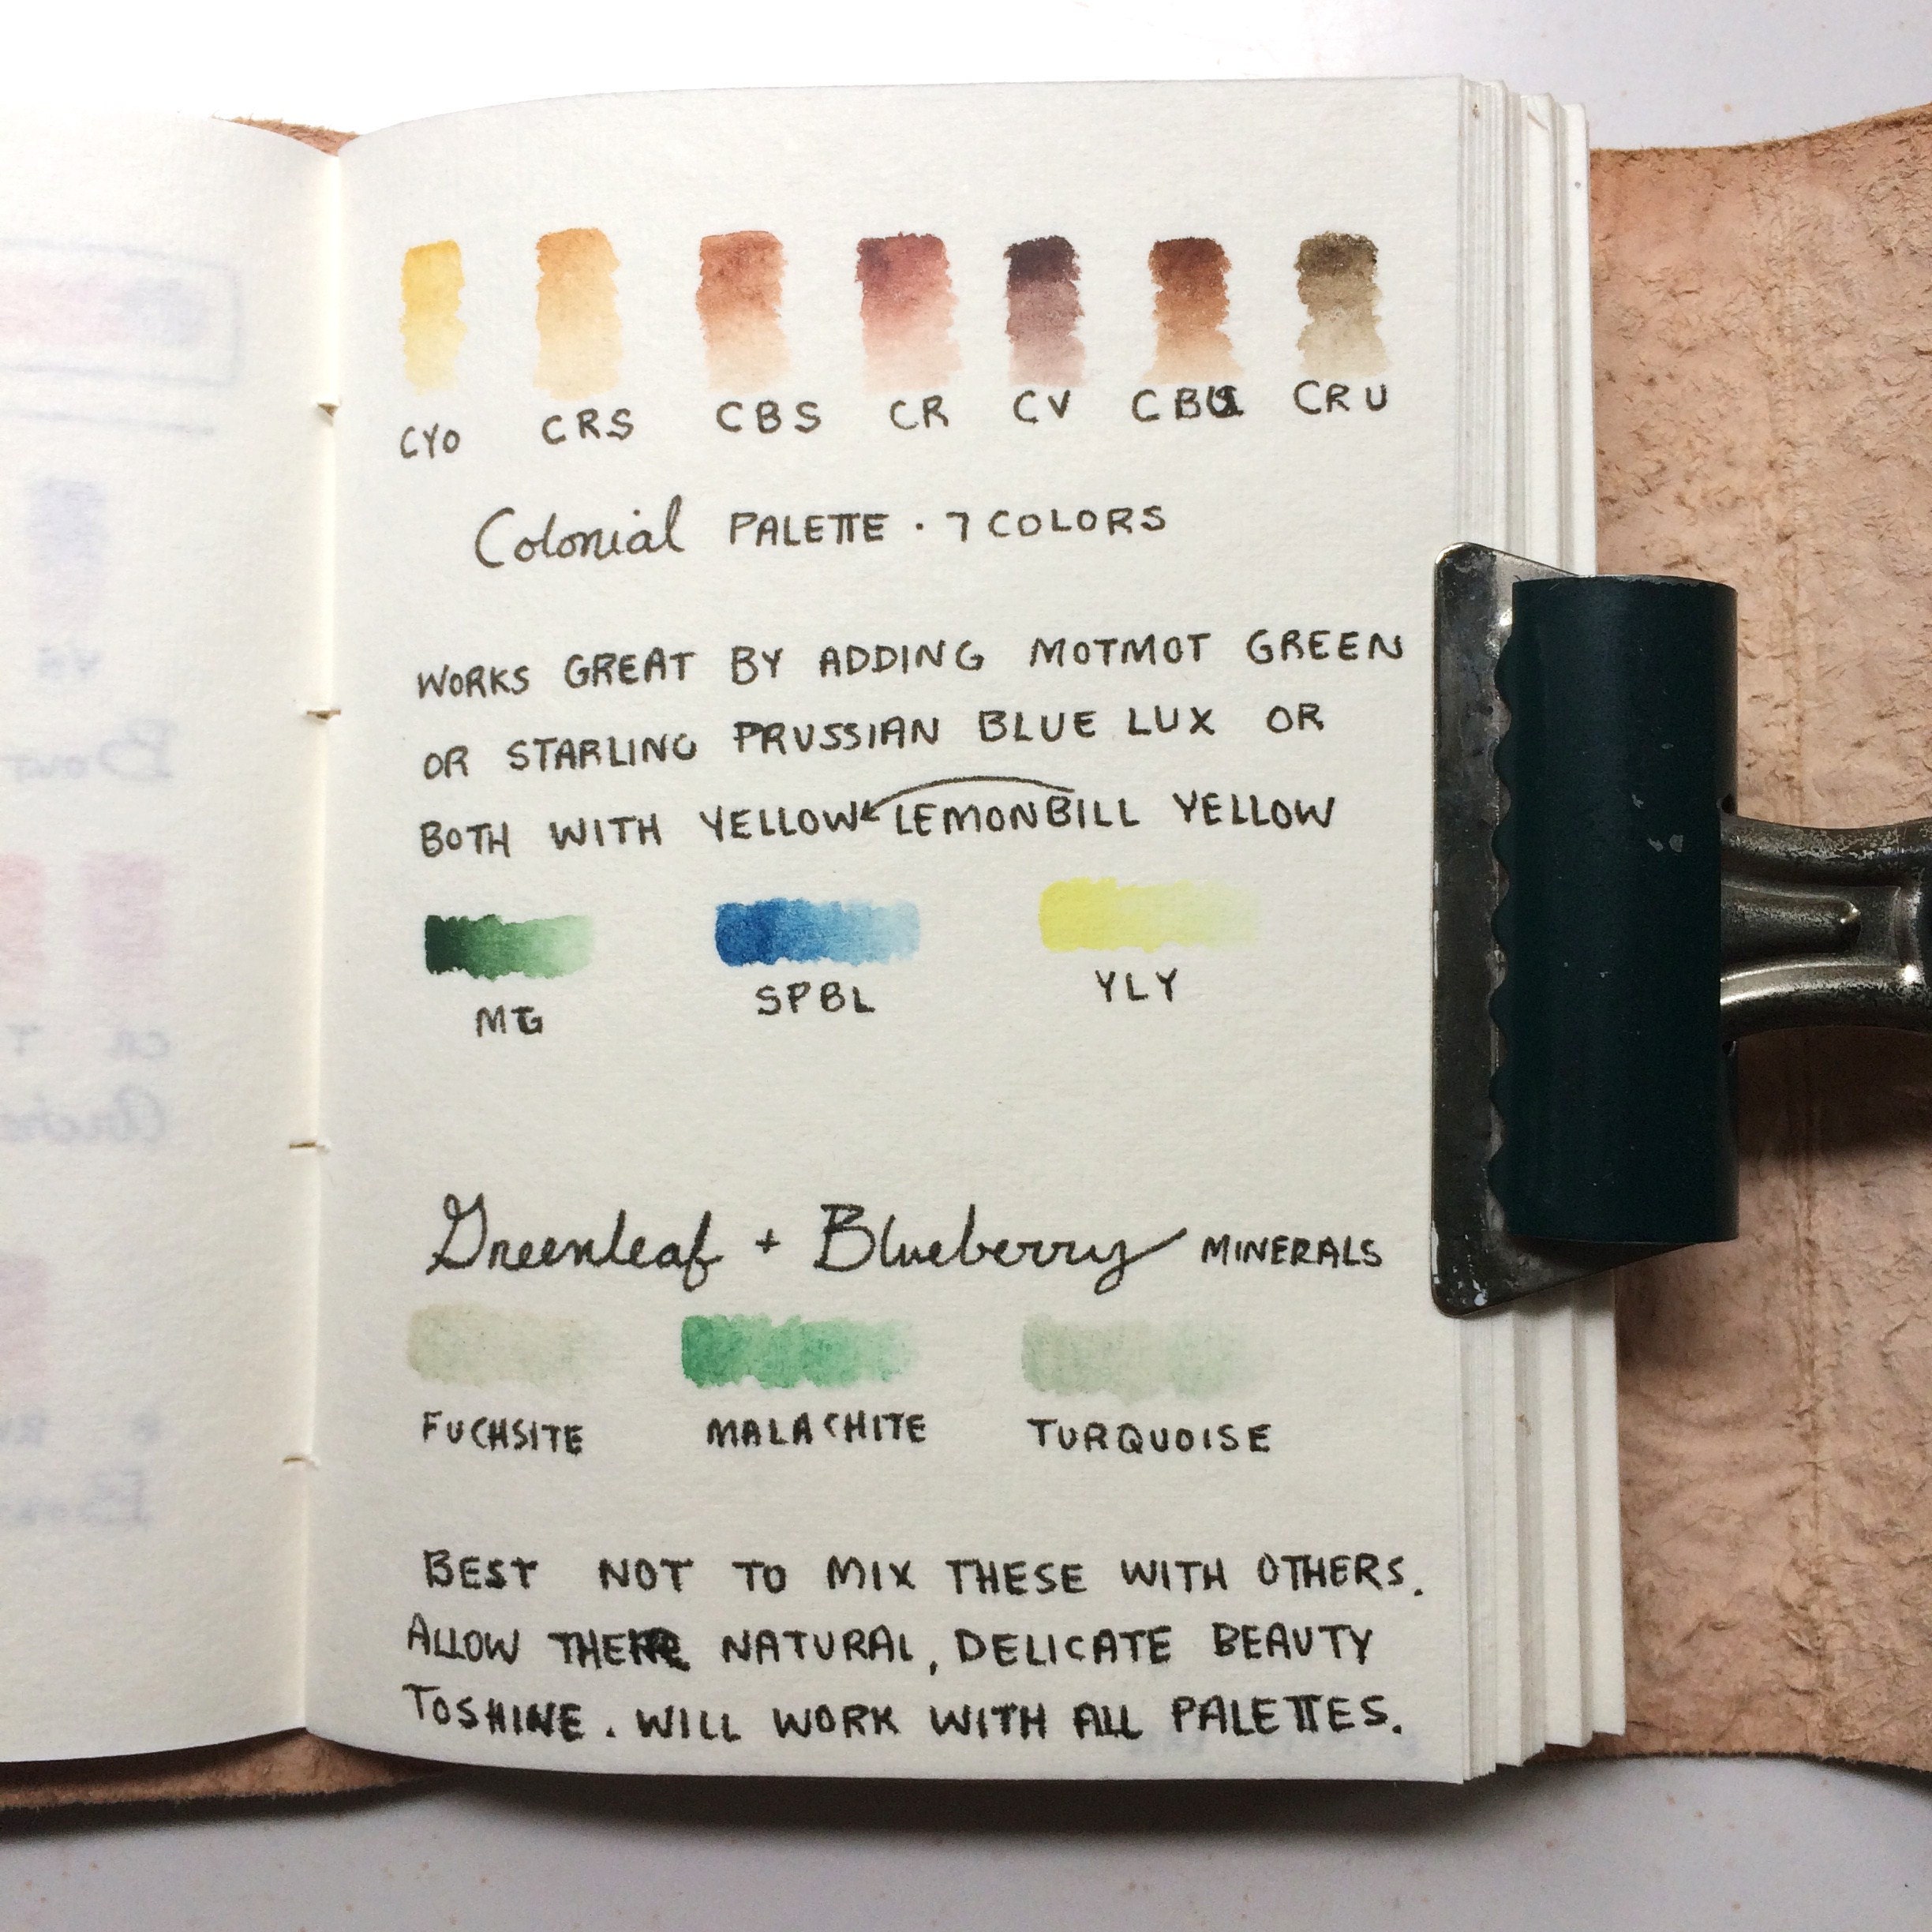 CYO CRS CBS CR CV CBU CRU
Colonial PALETTE · 7 COLORS
WORKS GREAT BY ADDING MOTMOT GREEN
OR STARLING PRUSSIAN BLUE LUX OR
BOTH WITH YELLOW LEMONBILL YELLOW
MG SPBL YLY
Greenleaf + Blueberry MINERALS
FUCHSITE MALACHITE TURQUOISE
BEST NOT TO MIX THESE WITH OTHERS.
ALLOW THEIR NATURAL, DELICATE BEAUTY
TO SHINE. WILL WORK WITH ALL PALETTES.